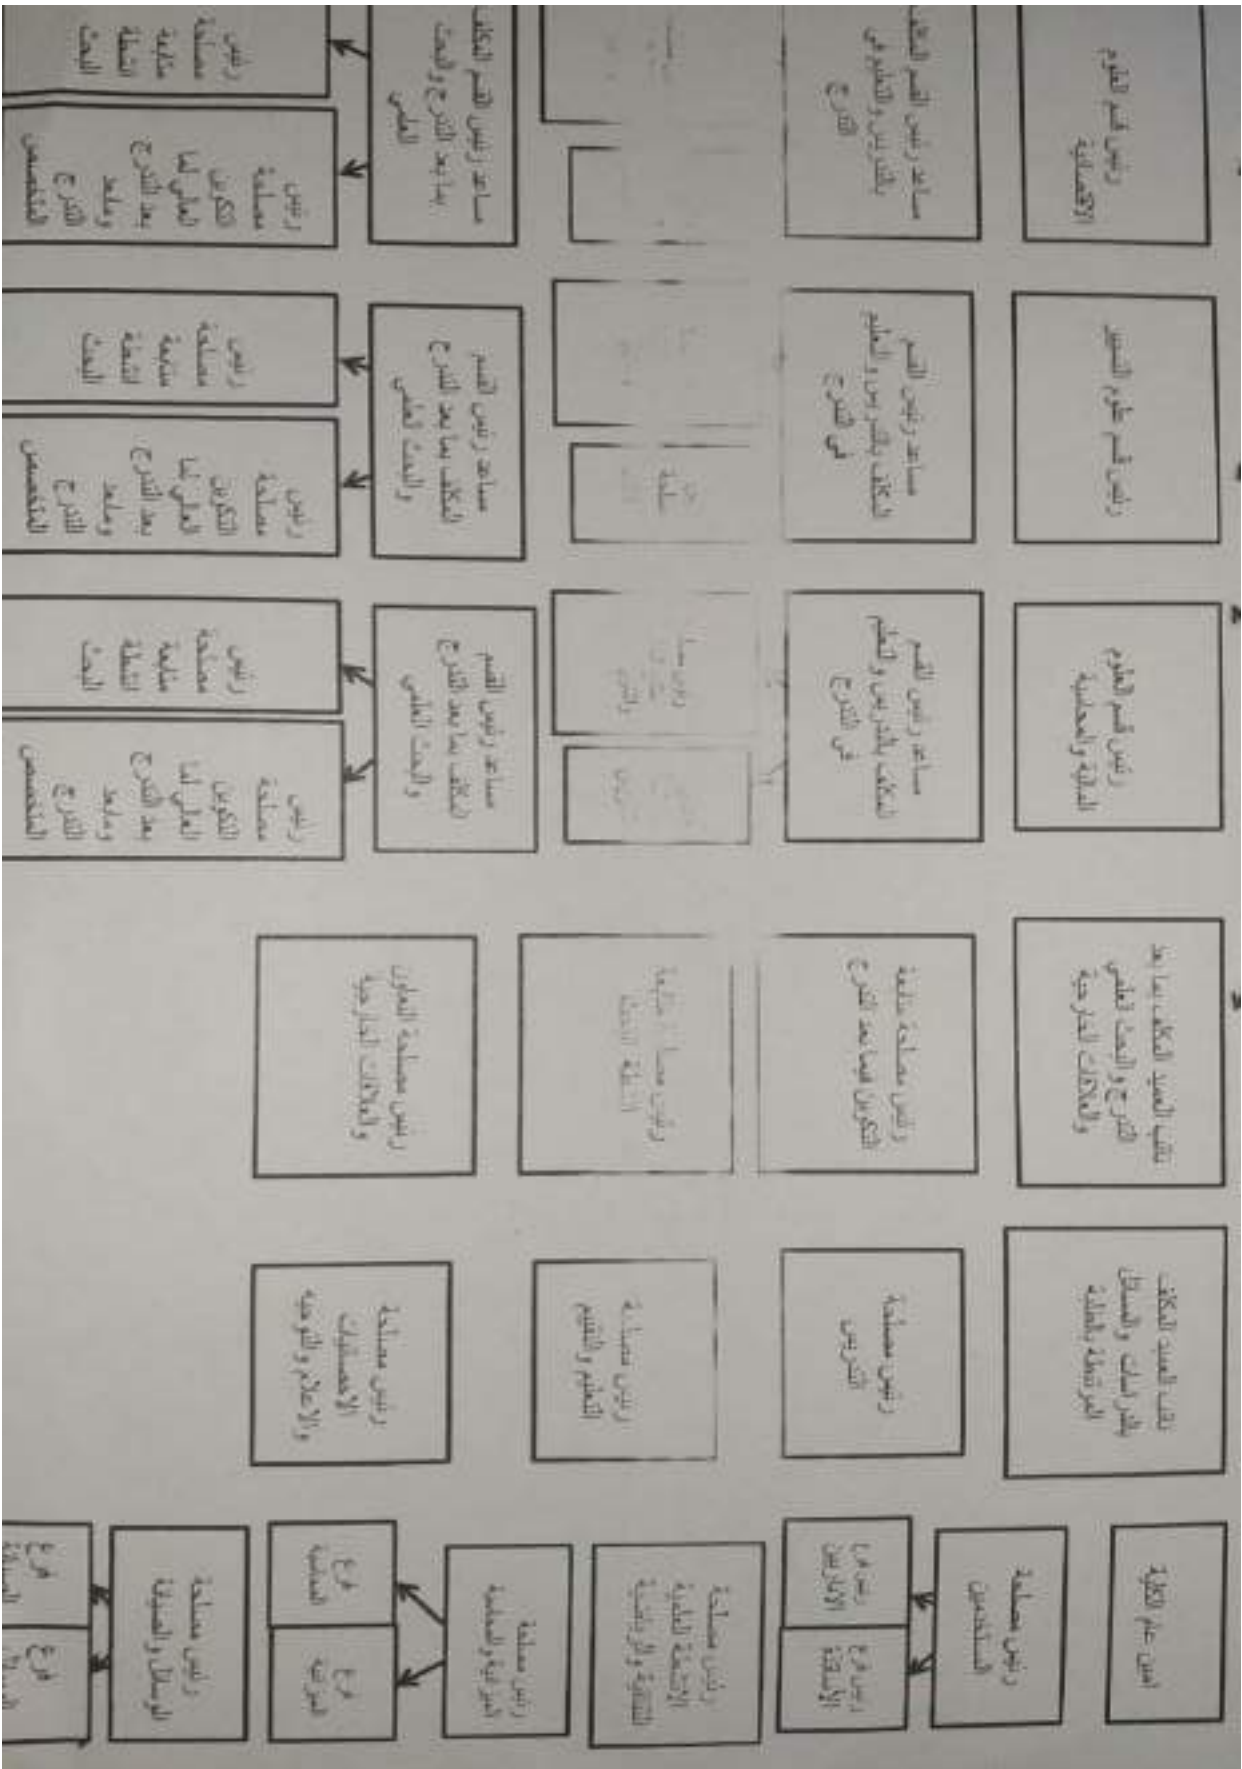 امين عام الكلية
رئيس مصلحة
المستخدمين
رئيس فرع
الأساتذة
رئيس فرع
الإداريين
رئيس مصلحة
الانشطة العلمية
الثقافية والرياضية
رئيس مصلحة
الميزانية والمحاسبة
فرع
الميزانية
فرع
المحاسبة
رئيس مصلحة
الوسائل والصيانة
فرع
فرع
نائب العميد المكلف
بالدراسات والمسائل
المرتبطة بالطلبة
رئيس مصلحة
التدريس
رئيس مصلحة
التعليم والتقييم
رئيس مصلحة
الاحصائيات
والاعلام والتوجيه
نائب العميد المكلف بما بعد
التدرج والبحث العلمي
والعلاقات الخارجية
رئيس مصلحة متابعة
التكوين فيما بعد التدرج
رئيس مصلحة متابعة
انشطة البحث
رئيس مصلحة التعاون
والعلاقات الخارجية
رئيس قسم العلوم
المالية والمحاسبة
مساعد رئيس القسم
المكلف بالتدريس والتعليم
في التدرج
مساعد رئيس القسم
المكلف بما بعد التدرج
والبحث العلمي
رئيس
مصلحة
التكوين
العالي لما
بعد التدرج
ومابعد
التدرج
المتخصص
رئيس
مصلحة
متابعة
انشطة
البحث
رئيس قسم علوم التسيير
مساعد رئيس القسم
المكلف بالتدريس والتعليم
في التدرج
مساعد رئيس القسم
المكلف بما بعد التدرج
والبحث العلمي
رئيس
مصلحة
التكوين
العالي لما
بعد التدرج
ومابعد
التدرج
المتخصص
رئيس
مصلحة
متابعة
انشطة
البحث
رئيس قسم العلوم
الاقتصادية
مساعد رئيس القسم المكلف
بالتدريس والتعليم في
التدرج
مساعد رئيس القسم المكلف
بما بعد التدرج والبحث
العلمي
رئيس
مصلحة
التكوين
العالي لما
بعد التدرج
ومابعد
التدرج
المتخصص
رئيس
مصلحة
متابعة
انشطة
البحث